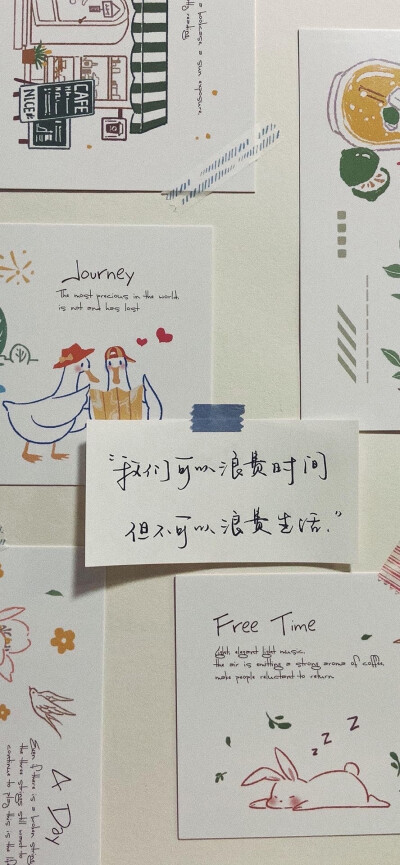 CAFE
NICE
Journey
The most precious in the world
is not and has lost
“我们可以浪费时间
但不可以浪费生活.”
Free Time
light elegant light music.
the air is emitting a strong aroma of coffee
make people reluctant to return
z z Z
A Day
Even if there is a broken string
the three strings still want to
continue to play this is the